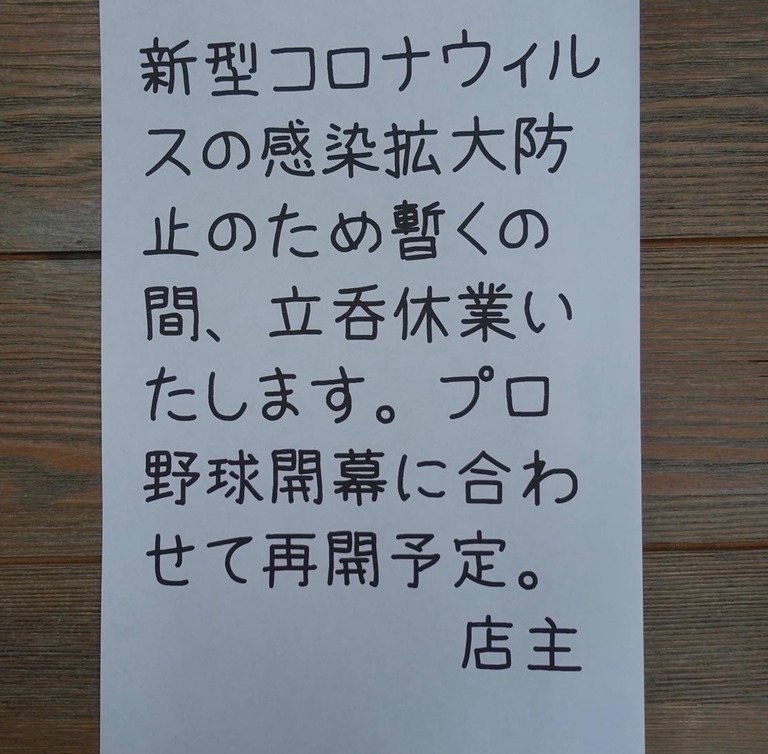 新型コロナウィル
スの感染拡大防
止のため暫くの
間、立呑休業い
たします。プロ
野球開幕に合わ
せて再開予定。
店主